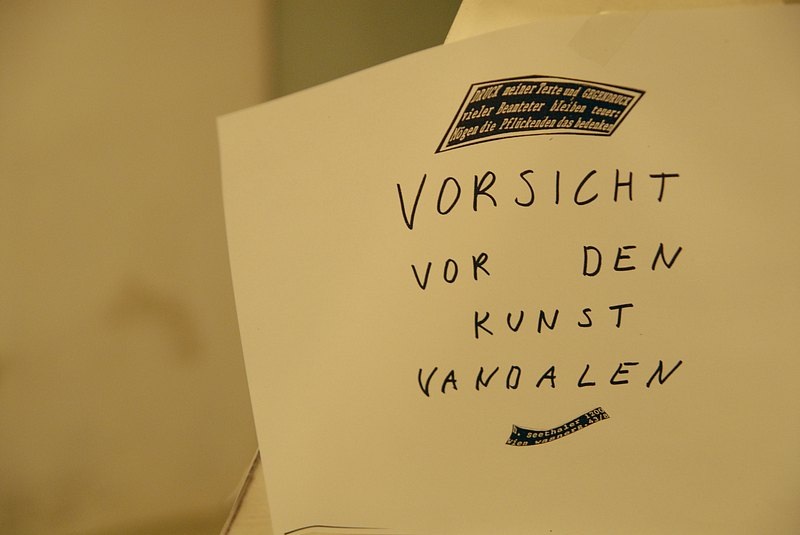 DRUCK meiner Texte und GEGENDRUCK
vieler Beamteter bleiben teuer:
Mögen die Pflückenden das bedenken
VORSICHT
VOR DEN
KUNST
VANDALEN
H. Seethaler 1200
Wien Wasnerg.43/8